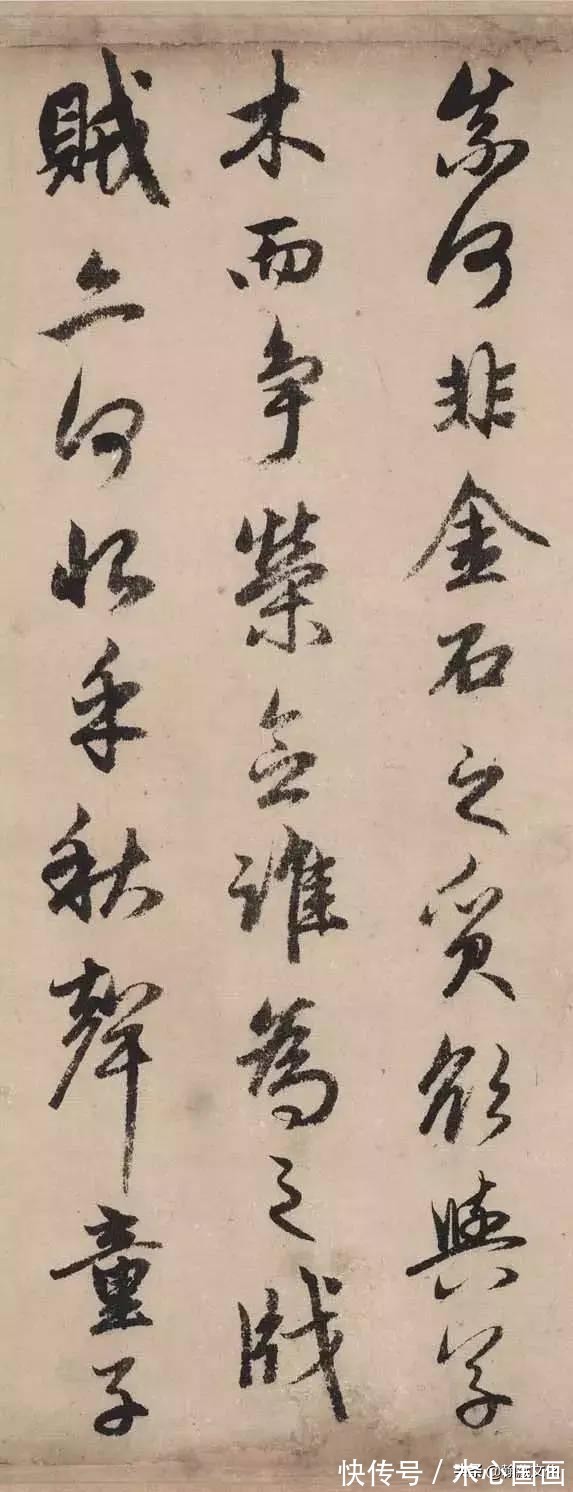 奈何非金石之質欲與草
木而爭榮念誰為之戕
賊亦何恨乎秋聲童子
快传号 / 木心国画